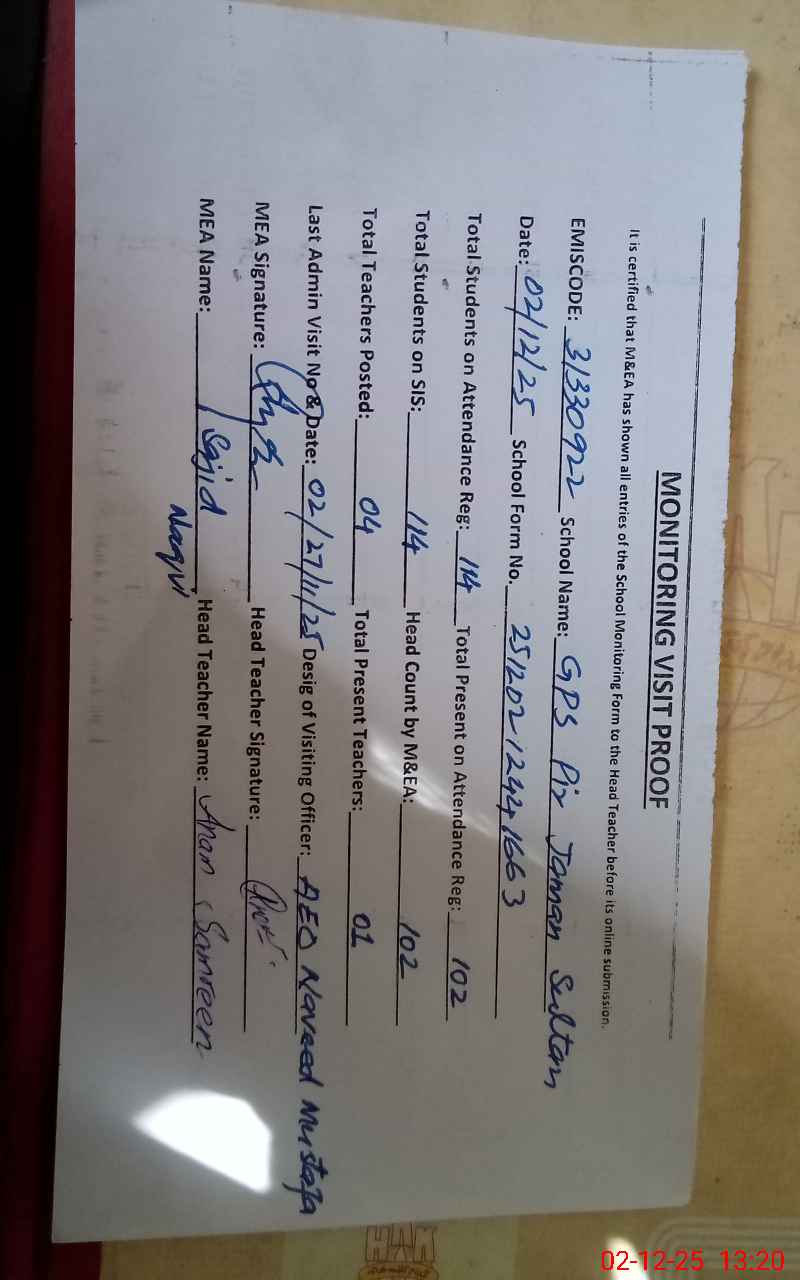 MONITORING VISIT PROOF
It is certified that M&EA has shown all entries of the School Monitoring Form to the Head Teacher before its online submission.
EMISCODE: 31330922 School Name: GPS Pir Jaman Sultan
Date: 02/12/25 School Form No. 251202124241663
Total Students on Attendance Reg: 114 Total Present on Attendance Reg: 102
Total Students on SIS: 114 Head Count by M&EA: 102
Total Teachers Posted: 04 Total Present Teachers: 01
Last Admin Visit No & Date: 02/27/11/25 Desig of Visiting Officer: AEO Naveed Mustafa
MEA Signature: Head Teacher Signature:
MEA Name: Sajid Naqvi Head Teacher Name: Anam Samreen
HAM
02-12-25 13:20